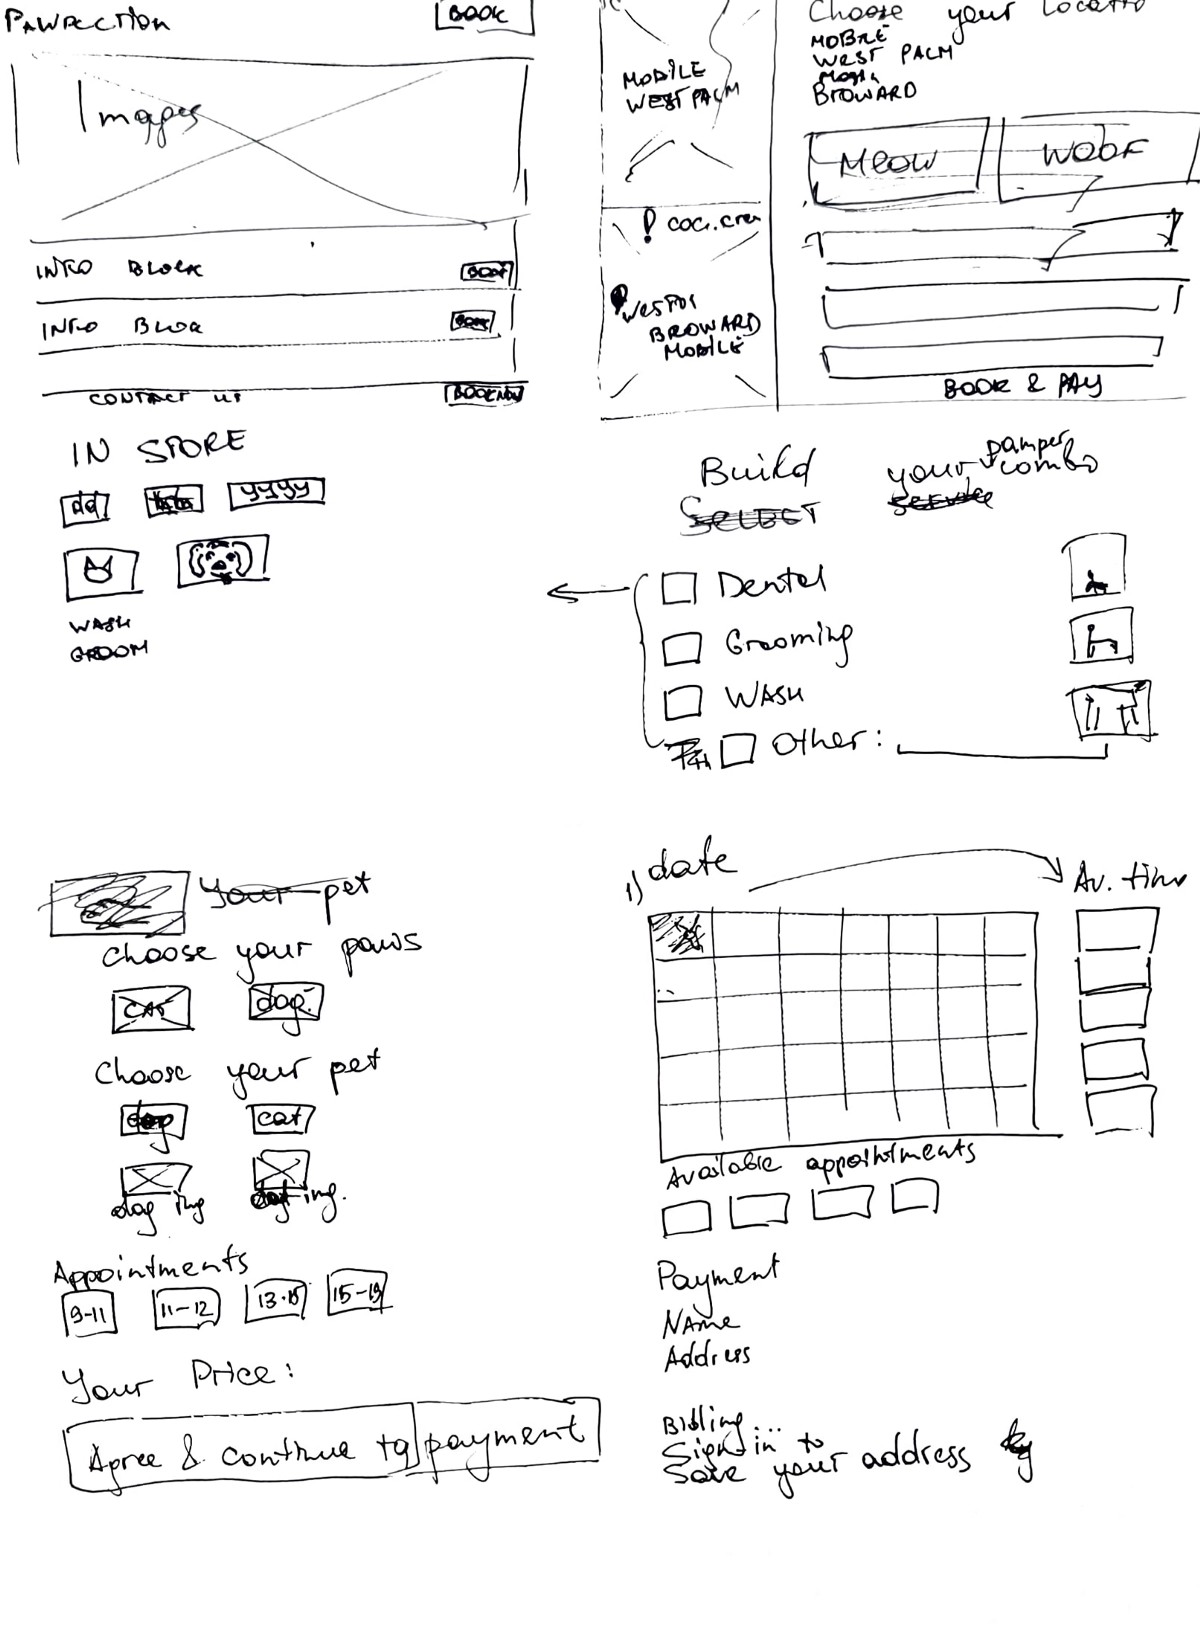 PAWFECTION
BOOK
Images
INTRO BLOCK
INTRO BLOK
CONTACT US
BOOK NOW
MOBILE
WEST PALM
WEST PAL
BROWARD
MOBILE
Choose your Locatio
MOBILE
WEST PALM
BROWARD
MEOW
WOOF
BOOK & PAY
IN STORE
WASH
GROOM
Build your pamper combo
SELECT service
Dental
Grooming
WASH
Other:
Your pet
Choose your paws
CAT
dog
Choose your pet
dog
cat
dog img
img.
Appointments
9-11
11-12
13-15
15-19
Your Price:
Agree & continue to payment
1) date
Av. time
Available appointments
Payment
Name
Address
Billing...
Sign in to
Save your address